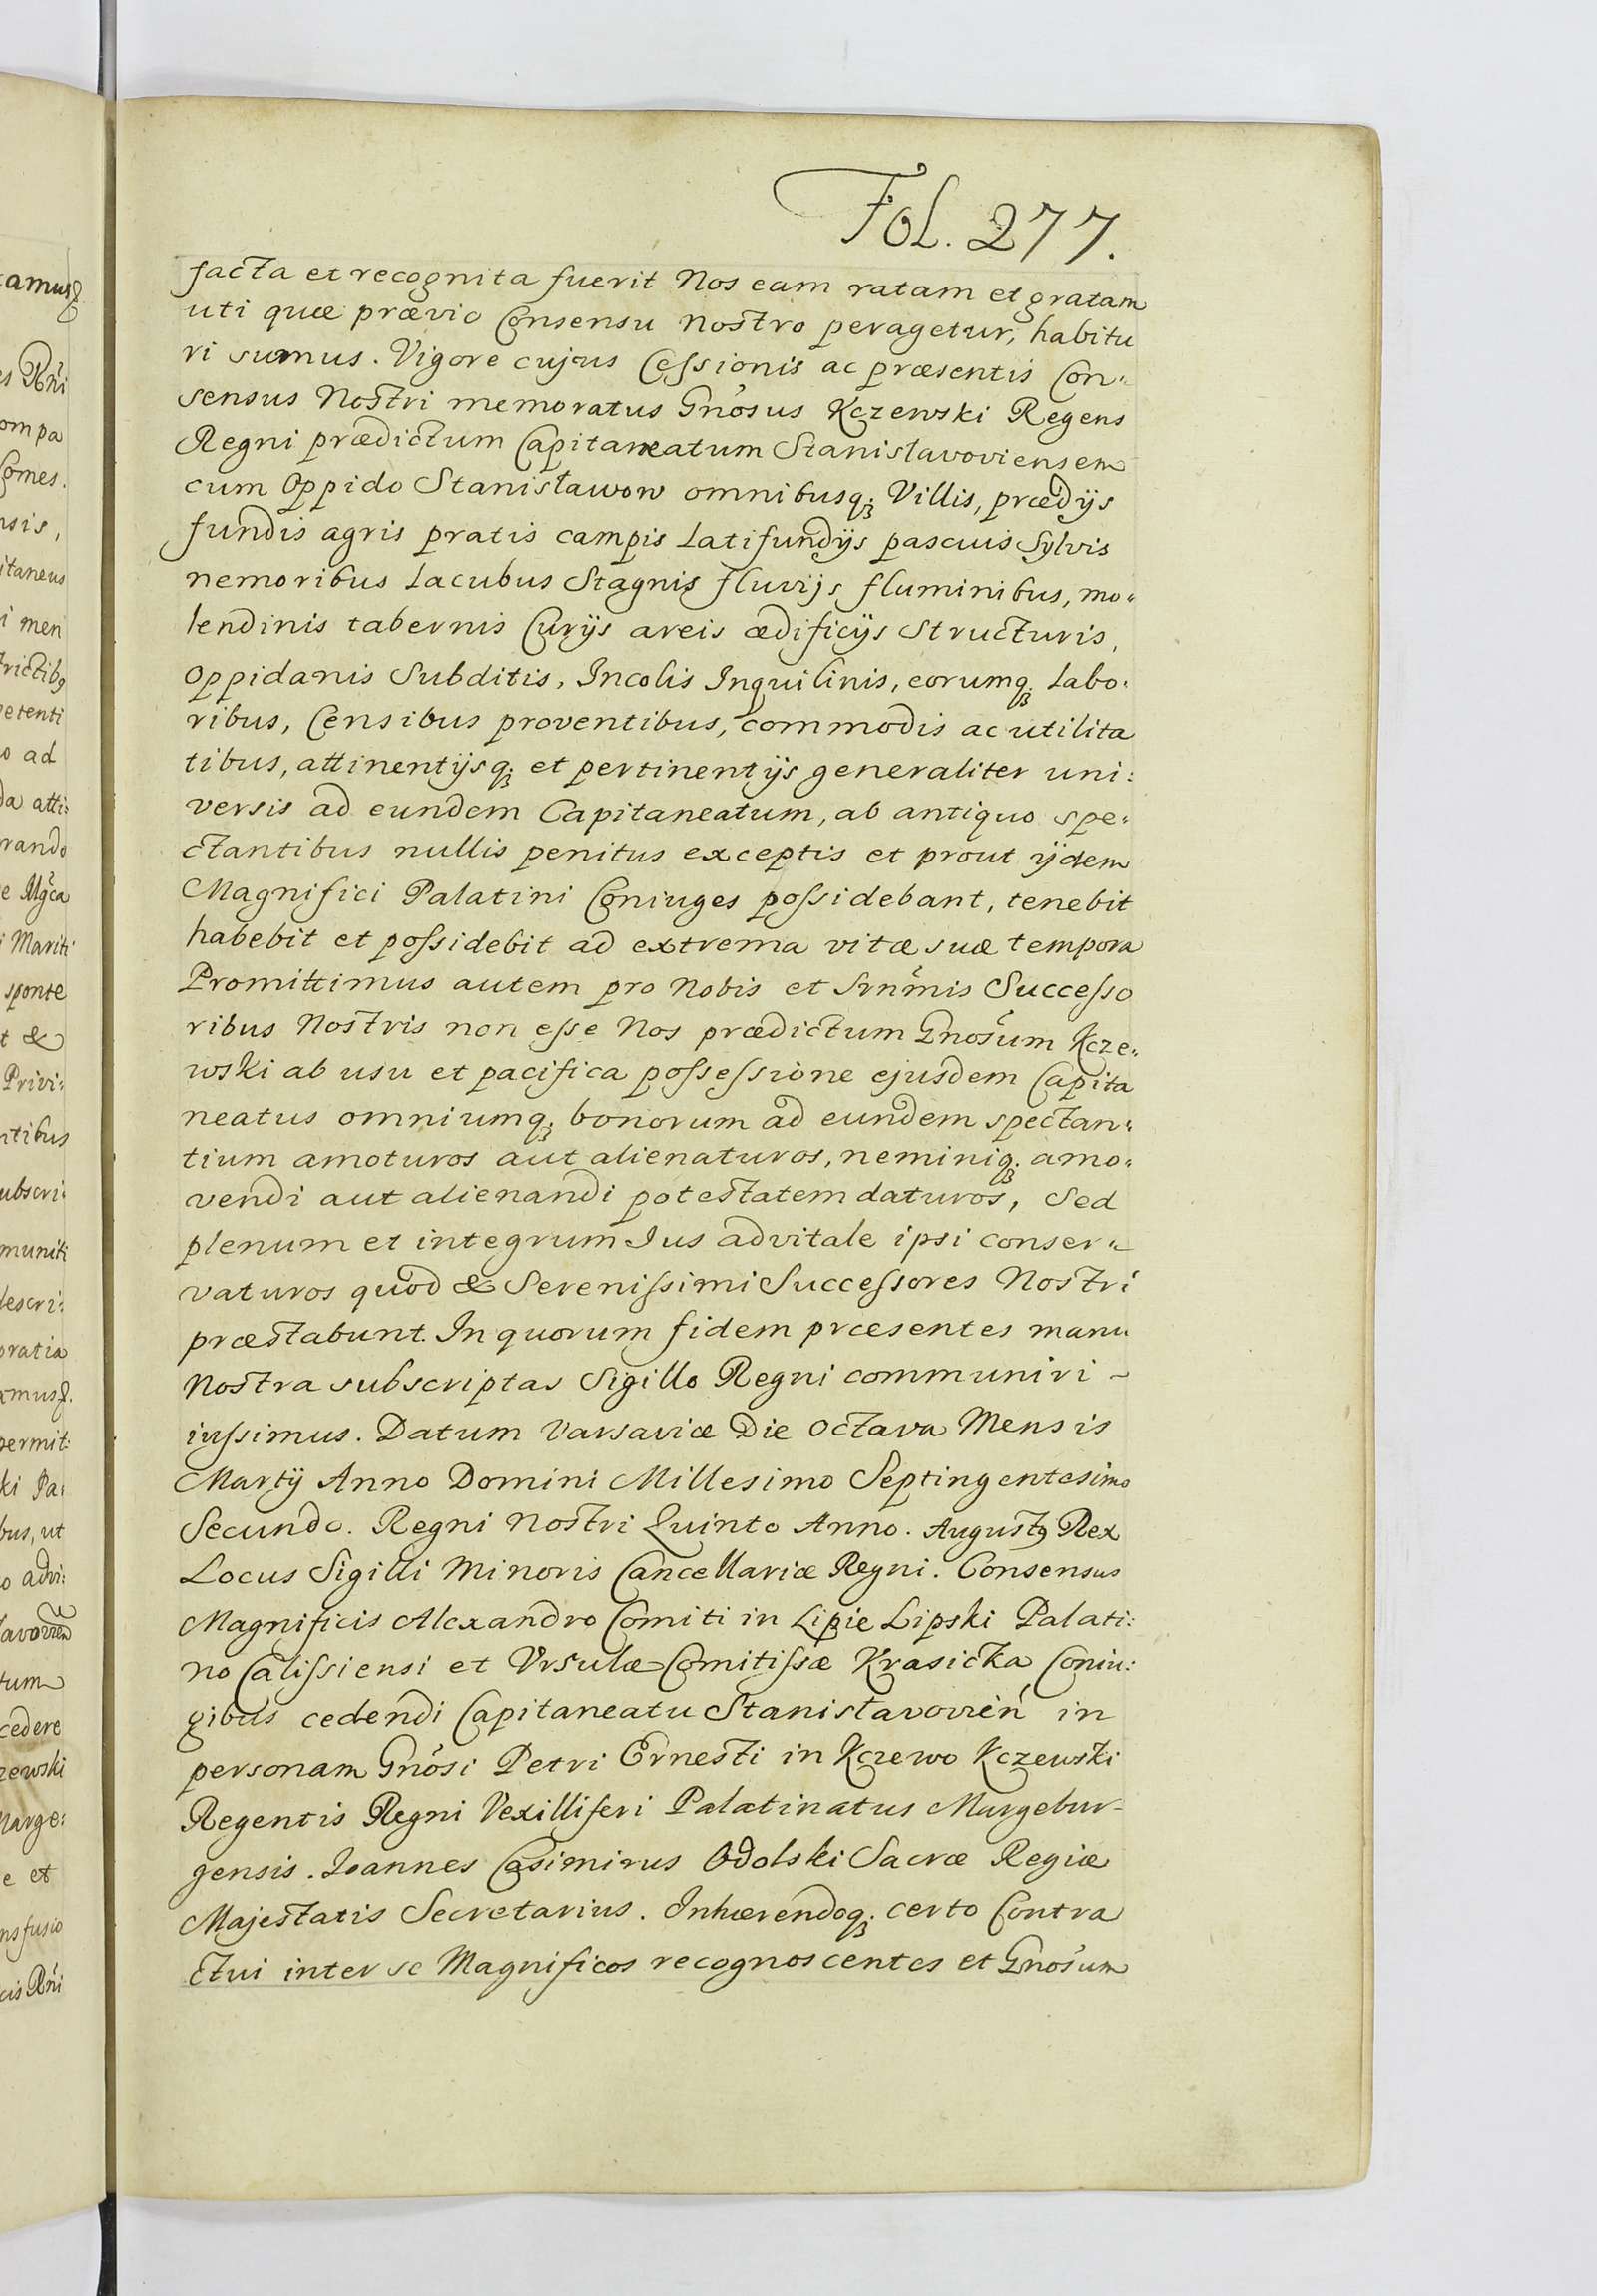 Fol. 277.
facta et recognita fuerit Nos eam ratam et gratam
uti quæ prævio Consensu nostro peragetur, habitu
ri sumus. Vigore cujus Cessionis ac præsentis Con„
sensus Nostri memoratus Gnõsus Kczewski Regens
Regni prædictum Capitaneatum Stanisłavoviensem
cum Oppido Stanisławow omnibusq; Villis, prædijs
fundis agris pratis campis Latifundijs pascuis Sylvis
nemoribus Lacubus Stagnis fluvijs fluminibus, mo„
lendinis tabernis Curijs areis ædificijs Structuris,
Oppidanis Subditis, Incolis Inquilinis, eorumq; Labo„
ribus, Censibus proventibus, commodis ac utilita
tibus, attinentijsq; et pertinentijs generaliter uni:
versis ad eundem Capitaneatum, ab antiquo spe„
ctantibus nullis penitus exceptis et prout ijdem
Magnifici Palatini Coniuges possidebant, tenebit
habebit et possidebit ad extrema vitæ suæ tempora
Promittimus autem pro Nobis et Srnm̃is Successo
ribus Nostris non esse Nos prædictum Gnosũm Kcze„
wski ab usu et pacifica possessione ejusdem Capita
neatus omniumq; bonorum ad eundem spectan„
tium amoturos aut alienaturos, neminiq; amo„
vendi aut alienandi potestatem daturos, Sed
plenum et integrum Jus advitale ipsi conser„
vaturos quod & Serenissimi Successores Nostri
præstabunt. In quorum fidem præsentes manu
Nostra subscriptas Sigillo Regni communiri ~
iussimus. Datum Varsaviæ Die Octava Mensis
Martij Anno Domini Millesimo Septingentesimo
Secundo. Regni Nostri Quinto Anno. Augustꝰ Rex
Locus Sigilli Minoris Cancellariæ Regni. Consensus
Magnificis Alexandro Comiti in Lipie Lipski Palati:
no Calissiensi et Vrsulæ Comitissæ Krasicka Coniu:
gibus cedendi Capitaneatu Stanisłavovień in
personam Gnõsi Petri Ernesti in Kczewo Kczewski
Regentis Regni Vexilliferi Palatinatus Margebur-
gensis. Joannes Casimirus Odolski Sacræ Regiæ
Majestatis Secretarius. Inhærendoq; certo Contra
ctui inter se Magnificos recognoscentes et Gnosũm